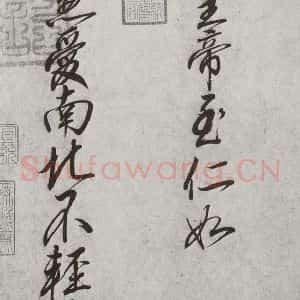 皇帝至仁如
兼愛南北不輕
Shufawang.CN